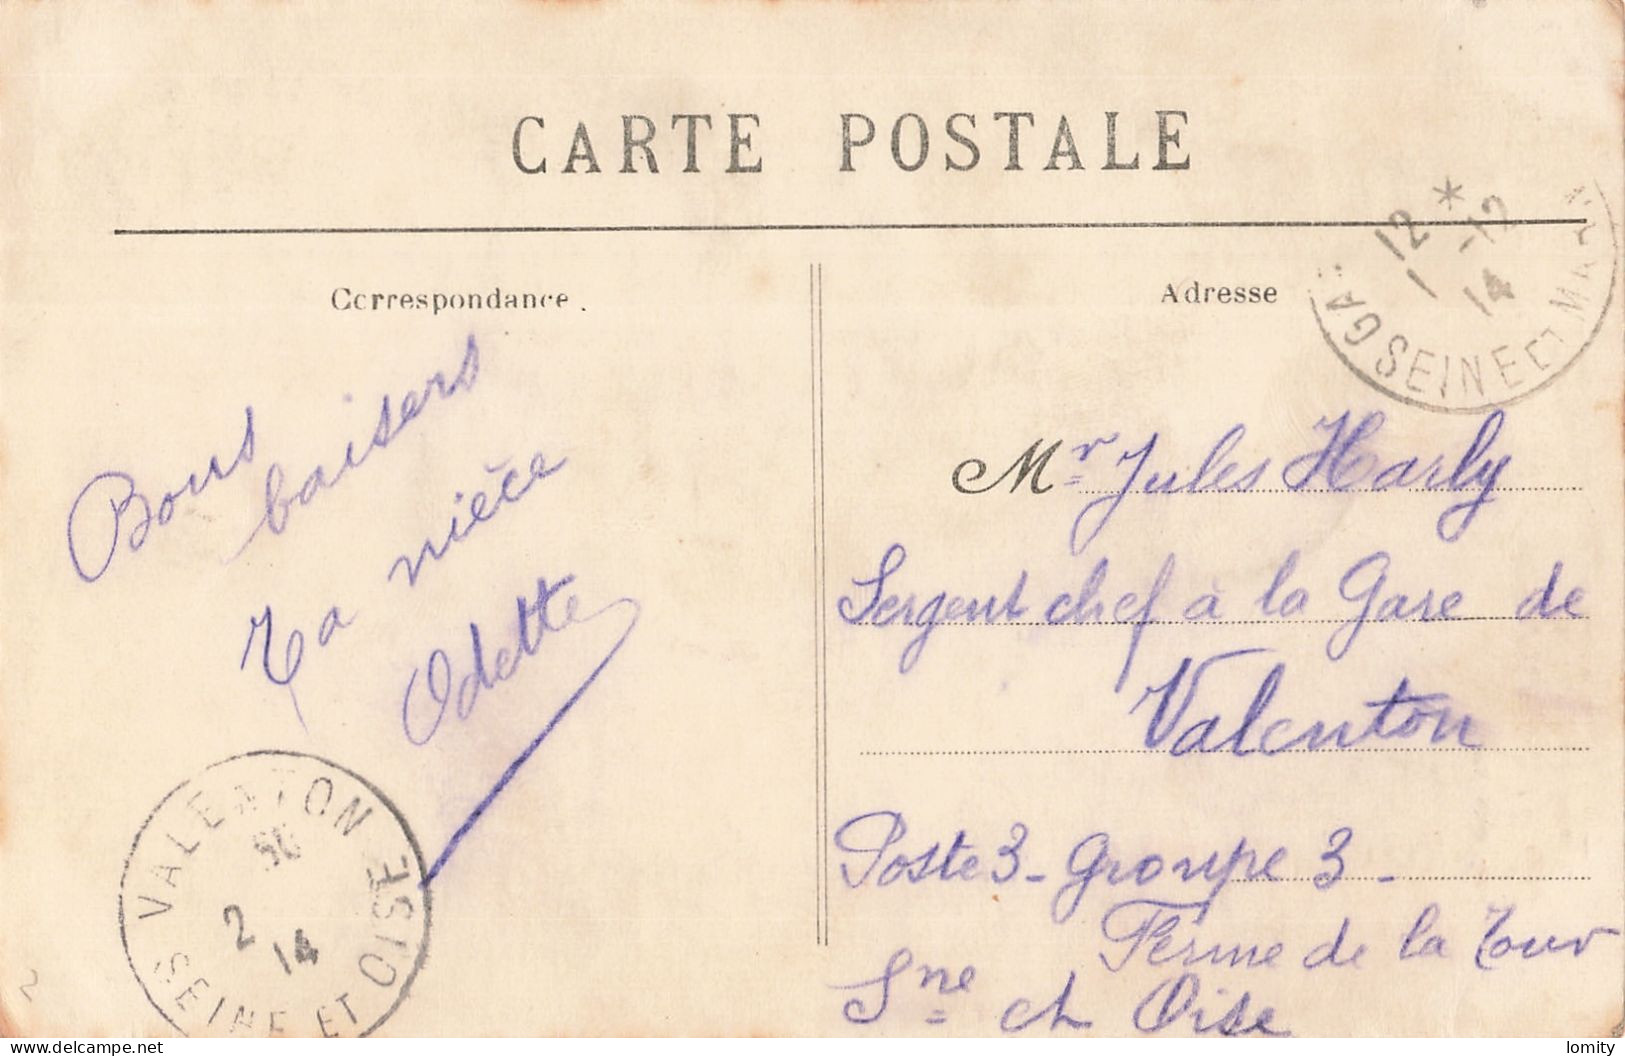 CARTE POSTALE
Correspondance.
Adresse
12 *
1 -12
14
SEINE ET MAR
Bons
baisers
Ta nièce
Odette
Mr Jules Harly
Sergent chef à la Gare de
Valenton
Poste 3 - Groupe 3 -
Ferme de la Tour
Sne et Oise
VALENTON
2
14
SEINE ET OISE
2
delcampe.net
lomity